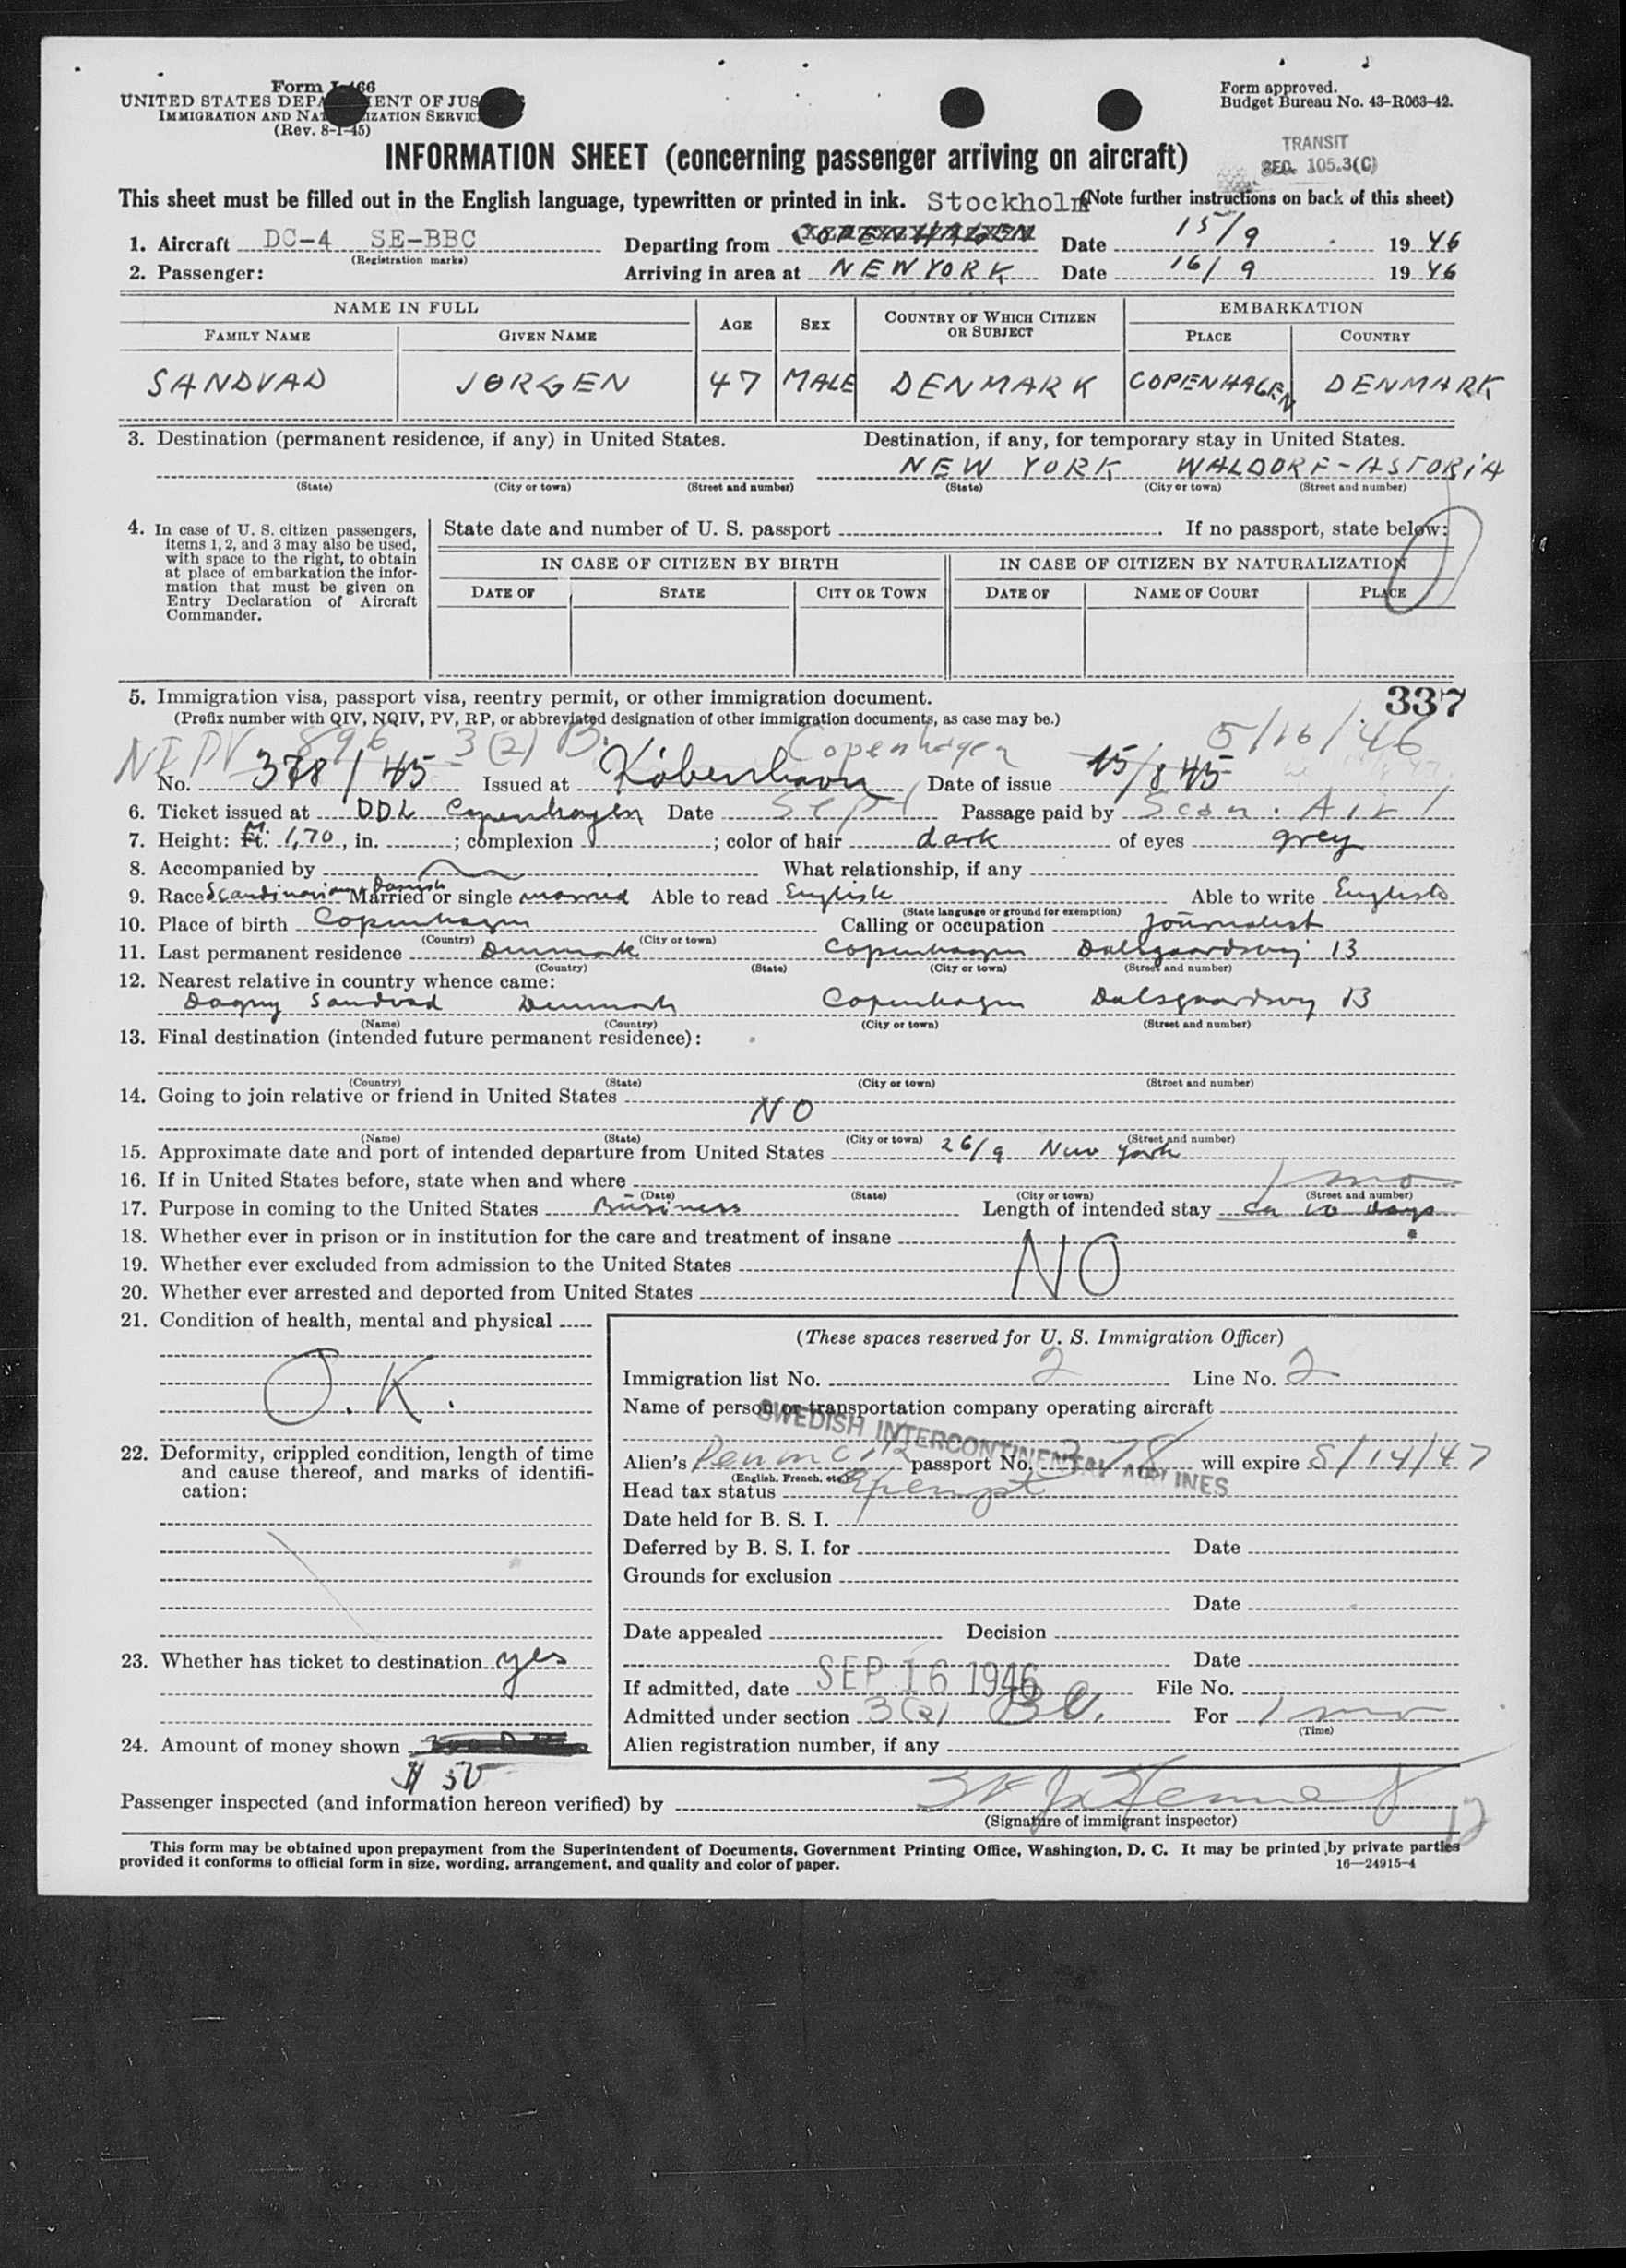 Form I-466
UNITED STATES DEPARTMENT OF JUSTICE
IMMIGRATION AND NATURALIZATION SERVICE
(Rev. 8-1-45)
Form approved.
Budget Bureau No. 43-R063-42.
TRANSIT
SEC. 105.3(C)
INFORMATION SHEET (concerning passenger arriving on aircraft)
This sheet must be filled out in the English language, typewritten or printed in ink. Stockholm (Note further instructions on back of this sheet)
1. Aircraft DC-4 SE-BBC Departing from COPENHAGEN Date 15/9 1946
(Registration marks)
2. Passenger: Arriving in area at NEW YORK Date 16/9 1946
NAME IN FULL AGE SEX COUNTRY OF WHICH CITIZEN OR SUBJECT EMBARKATION
FAMILY NAME GIVEN NAME PLACE COUNTRY
SANDVAD JØRGEN 47 MALE DENMARK COPENHAGEN DENMARK
3. Destination (permanent residence, if any) in United States. Destination, if any, for temporary stay in United States.
NEW YORK WALDORF-ASTORIA
(State) (City or town) (Street and number) (State) (City or town) (Street and number)
4. In case of U. S. citizen passengers, items 1, 2, and 3 may also be used, with space to the right, to obtain at place of embarkation the information that must be given on Entry Declaration of Aircraft Commander.
State date and number of U. S. passport . If no passport, state below:
IN CASE OF CITIZEN BY BIRTH IN CASE OF CITIZEN BY NATURALIZATION
DATE OF STATE CITY OR TOWN DATE OF NAME OF COURT PLACE
5. Immigration visa, passport visa, reentry permit, or other immigration document. 337
(Prefix number with QIV, NQIV, PV, RP, or abbreviated designation of other immigration documents, as case may be.)
896 3(2) B. Copenhagen 5/16/46
No. 378/45 Issued at København Date of issue 15/8 45
6. Ticket issued at DDL Copenhagen Date Sept Passage paid by Scan. Air
7. Height: Ft. M. 1,70, in. ; complexion ; color of hair dark of eyes grey
8. Accompanied by What relationship, if any
9. Race Scandinavian Danish Married or single married Able to read English Able to write English
(State language or ground for exemption)
10. Place of birth Copenhagen Calling or occupation Journalist
(Country) (City or town)
11. Last permanent residence Denmark Copenhagen Dalsgaardsvej 13
(Country) (State) (City or town) (Street and number)
12. Nearest relative in country whence came:
Dagny Sandvad Denmark Copenhagen Dalsgaardsvej 13
(Name) (Country) (City or town) (Street and number)
13. Final destination (intended future permanent residence):
(Country) (State) (City or town) (Street and number)
14. Going to join relative or friend in United States
NO
(Name) (State) (City or town) (Street and number)
15. Approximate date and port of intended departure from United States 26/9 New York
16. If in United States before, state when and where 1 mo
(Date) (State) (City or town) (Street and number)
17. Purpose in coming to the United States Business Length of intended stay ca 10 days
18. Whether ever in prison or in institution for the care and treatment of insane
19. Whether ever excluded from admission to the United States NO
20. Whether ever arrested and deported from United States
21. Condition of health, mental and physical
O.K.
22. Deformity, crippled condition, length of time and cause thereof, and marks of identification:
23. Whether has ticket to destination yes
24. Amount of money shown
$ 50
(These spaces reserved for U. S. Immigration Officer)
Immigration list No. 2 Line No. 2
Name of person or transportation company operating aircraft
SWEDISH INTERCONTINENTAL AIRLINES
Alien's Denmark passport No. 378 will expire 8/14/47
(English, French, etc.)
Head tax status Exempt
Date held for B. S. I.
Deferred by B. S. I. for Date
Grounds for exclusion
Date
Date appealed Decision
Date
If admitted, date SEP 16 1946 File No.
Admitted under section 3(2) For 1 mo
(Time)
Alien registration number, if any
Passenger inspected (and information hereon verified) by
(Signature of immigrant inspector)
This form may be obtained upon prepayment from the Superintendent of Documents, Government Printing Office, Washington, D. C. It may be printed by private parties
provided it conforms to official form in size, wording, arrangement, and quality and color of paper. 16—24915-4